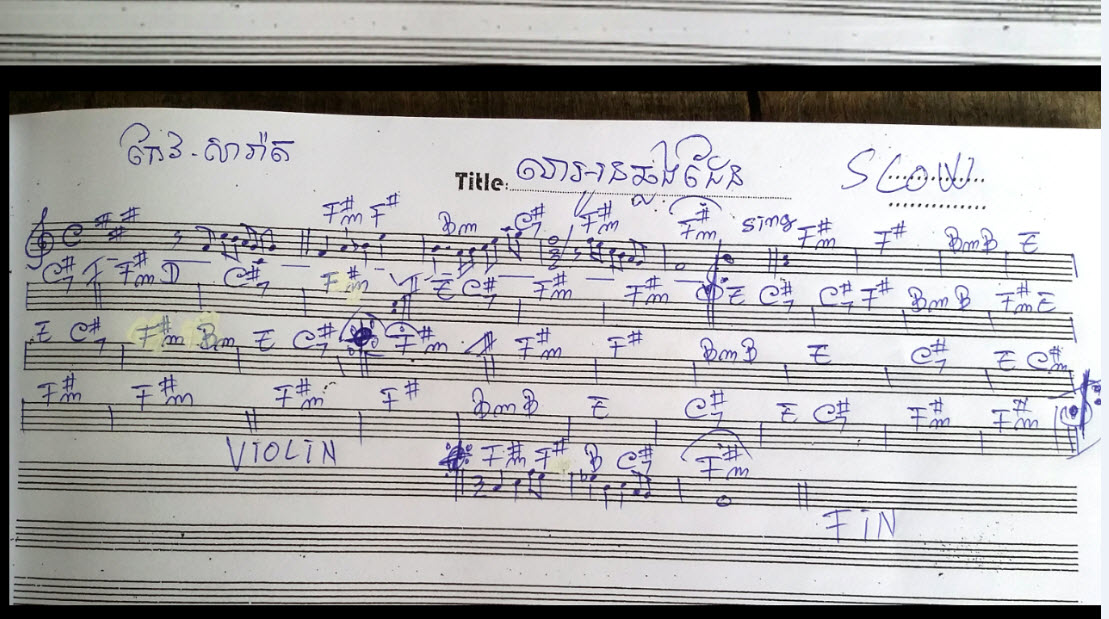 កែវ-សារ៉ាត់
Title: SLOW
F#m F# Bm C#7 F#m F#m sing F#m F# BmB E
C#7 F#m D C#7 F#m E C#7 F#m F#m E C#7 C#7 F# Bm B F#m E
E C#7 F#m Bm E C#7 F#m F#m F# BmB E C#7 E C#m
F#m F#m F#m F# BmB E C#7 E C#7 F#m F#m
VIOLIN F#m F# B C#7 F#m
FIN